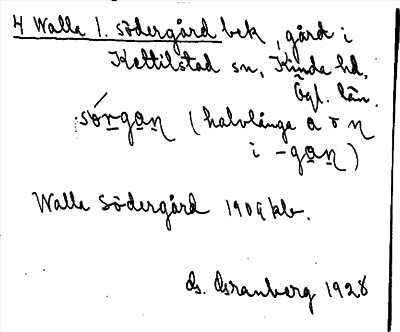 4 Walla l. södergård bek, gård i
Kettilstad sn, Kinda hd,
Ögl. län.
sórgan (halvlånga a o n
i -gan)
Walla Södergård 1909 kb.
G. Granberg 1928